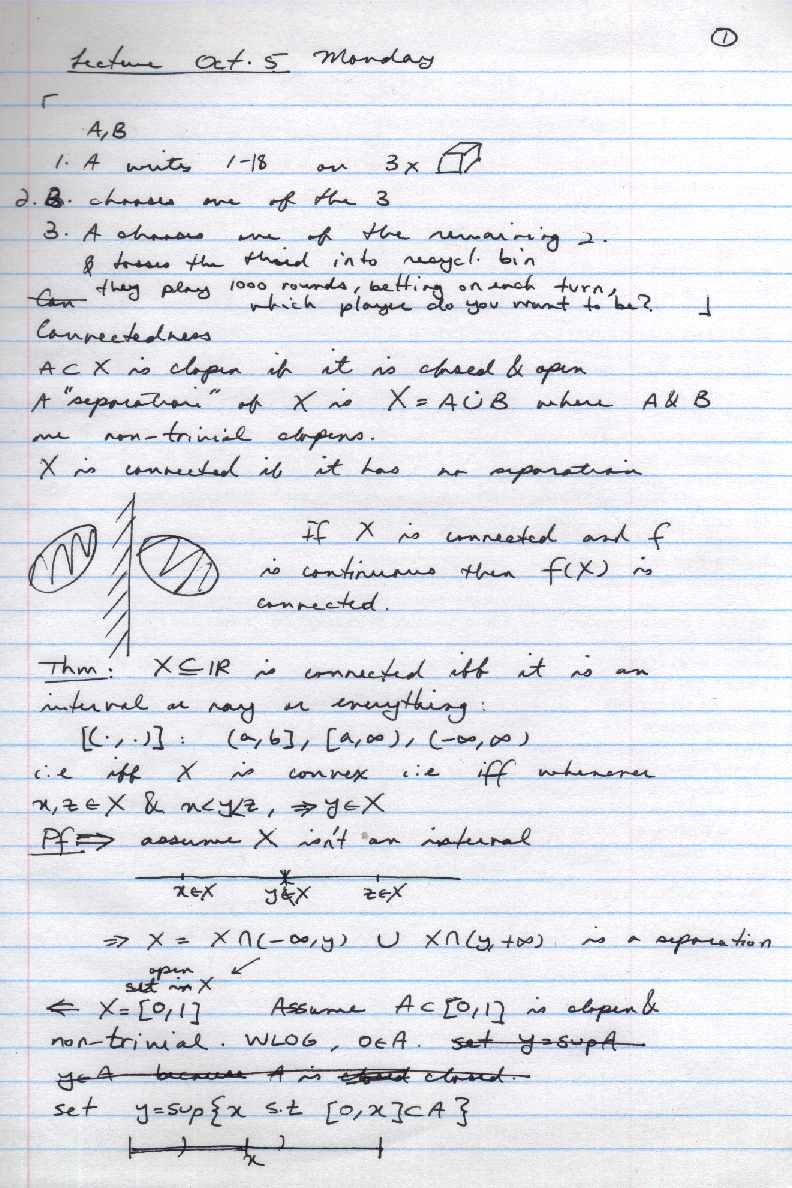 ①
Lecture Oct. 5 Monday
A, B
1. A writes 1-18 on 3x
2. B. chooses one of the 3
3. A chooses one of the remaining 2.
& tosses the third into recycl. bin
they play 1000 rounds, betting on each turn,
Can which player do you want to be?
Connectedness
A ⊂ X is clopen if it is closed & open
A "separation" of X is X = A ∪̇ B where A & B
are non-trivial clopens.
X is connected if it has no separation
If X is connected and f
is continuous then f(X) is
connected.
Thm: X ⊆ ℝ is connected iff it is an
interval or ray or everything:
[(·,·)] : (a,b], [a,∞), (-∞,∞)
i.e iff X is convex i.e iff whenever
x,z ∈ X & x<y<z, ⇒ y ∈ X
Pf ⇒ assume X isn't an interval
x∈X y∉X z∈X
⇒ X = X∩(-∞,y) ∪ X∩(y,+∞) is a separation
open
set in X
⇐ X=[0,1] Assume A⊂[0,1] is clopen &
non-trivial. WLOG, 0∈A. set y=sup A
y∈A because A is closed closed.
set y=sup{x s.t [0,x]⊂A}
x